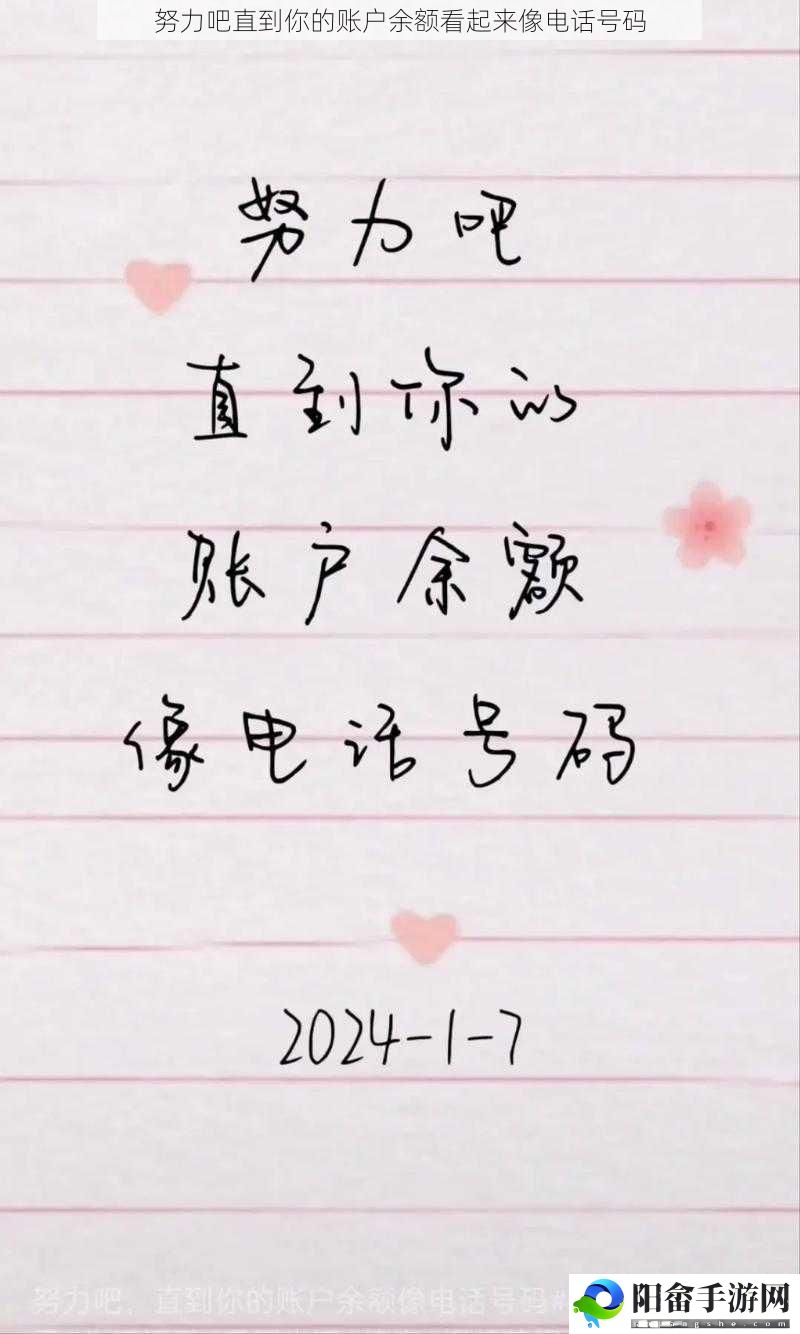 努力吧直到你的账户余额看起来像电话号码
努力吧
直到你的
账户余额
像电话号码
2024-1-7
努力吧，直到你的账户余额像电话号码#
阳畲手游网